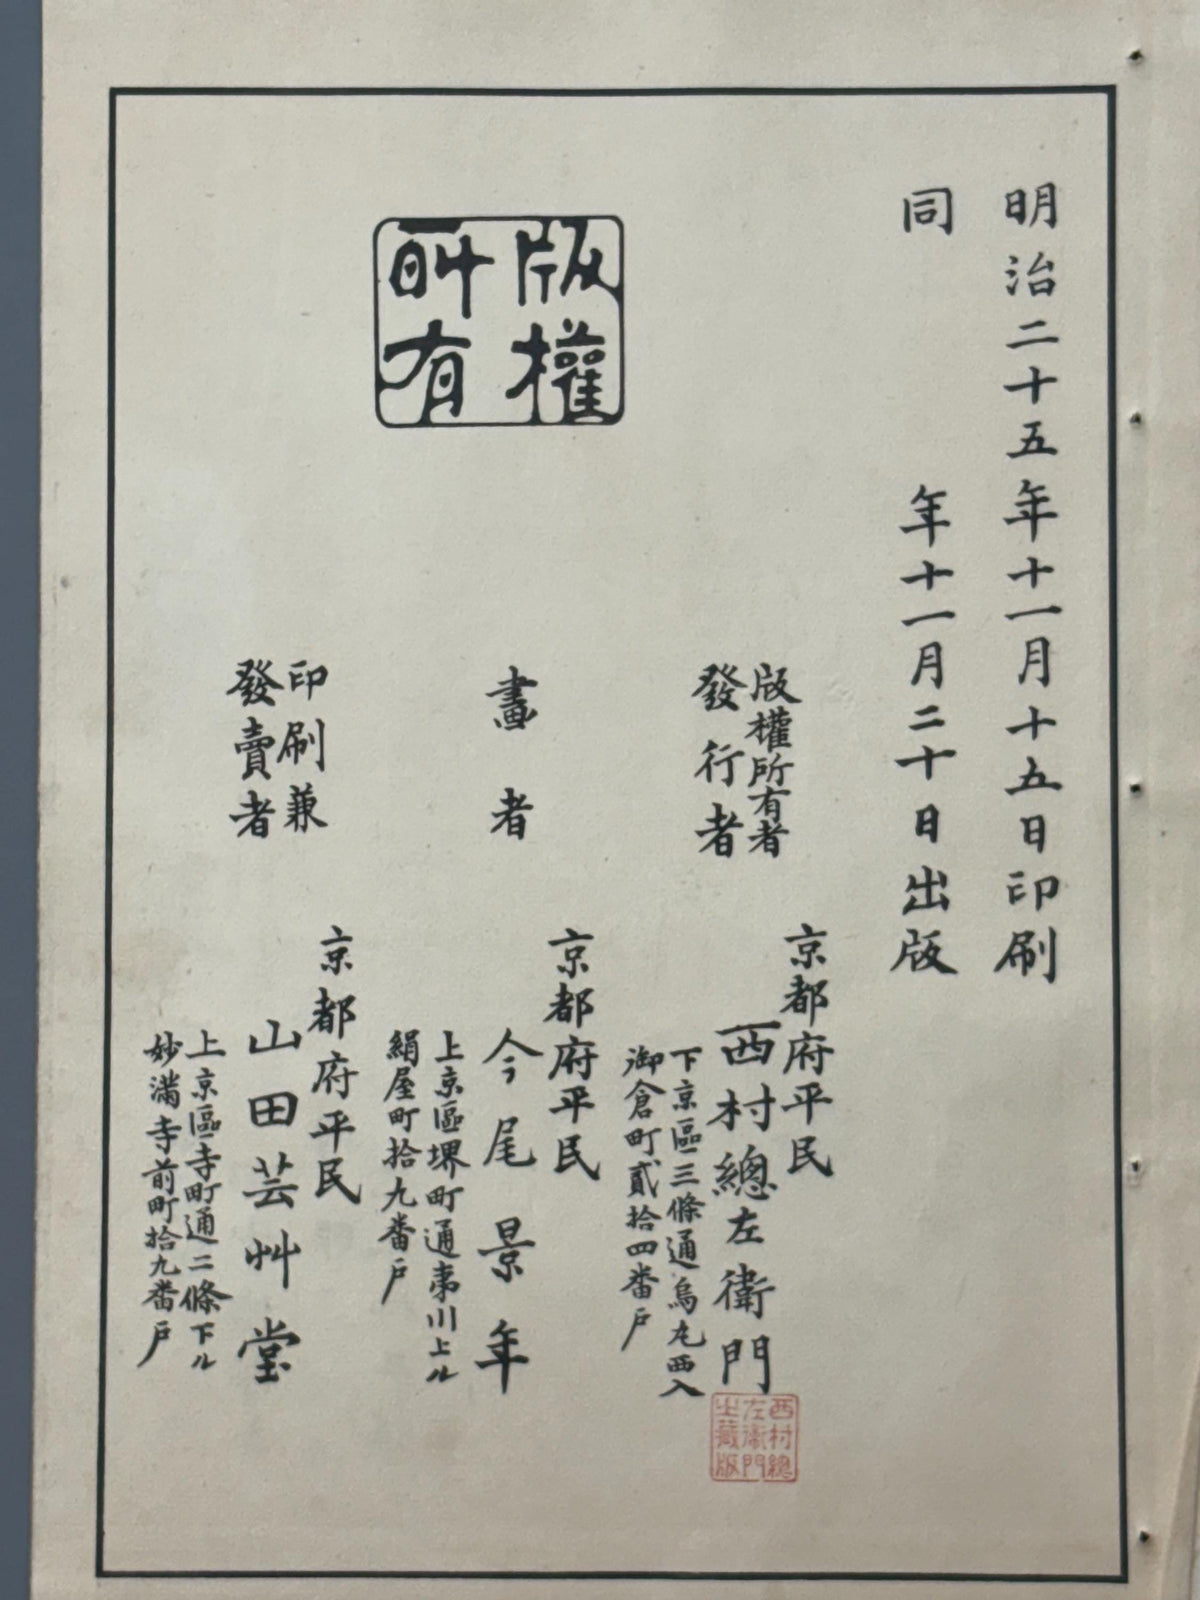 明治二十五年十一月十五日印刷
同年十一月二十日出版
版權所有者
發行者
京都府平民
西村總左衛門
下京區三條通烏丸西入
御倉町貳拾四番戶
西村總
左衛門
之藏版
版權
所有
畫者
京都府平民
今尾景年
上京區堺町通夷川上ル
絹屋町拾九番戶
印刷兼
發賣者
京都府平民
山田芸艸堂
上京區寺町通二條下ル
妙滿寺前町拾九番戶